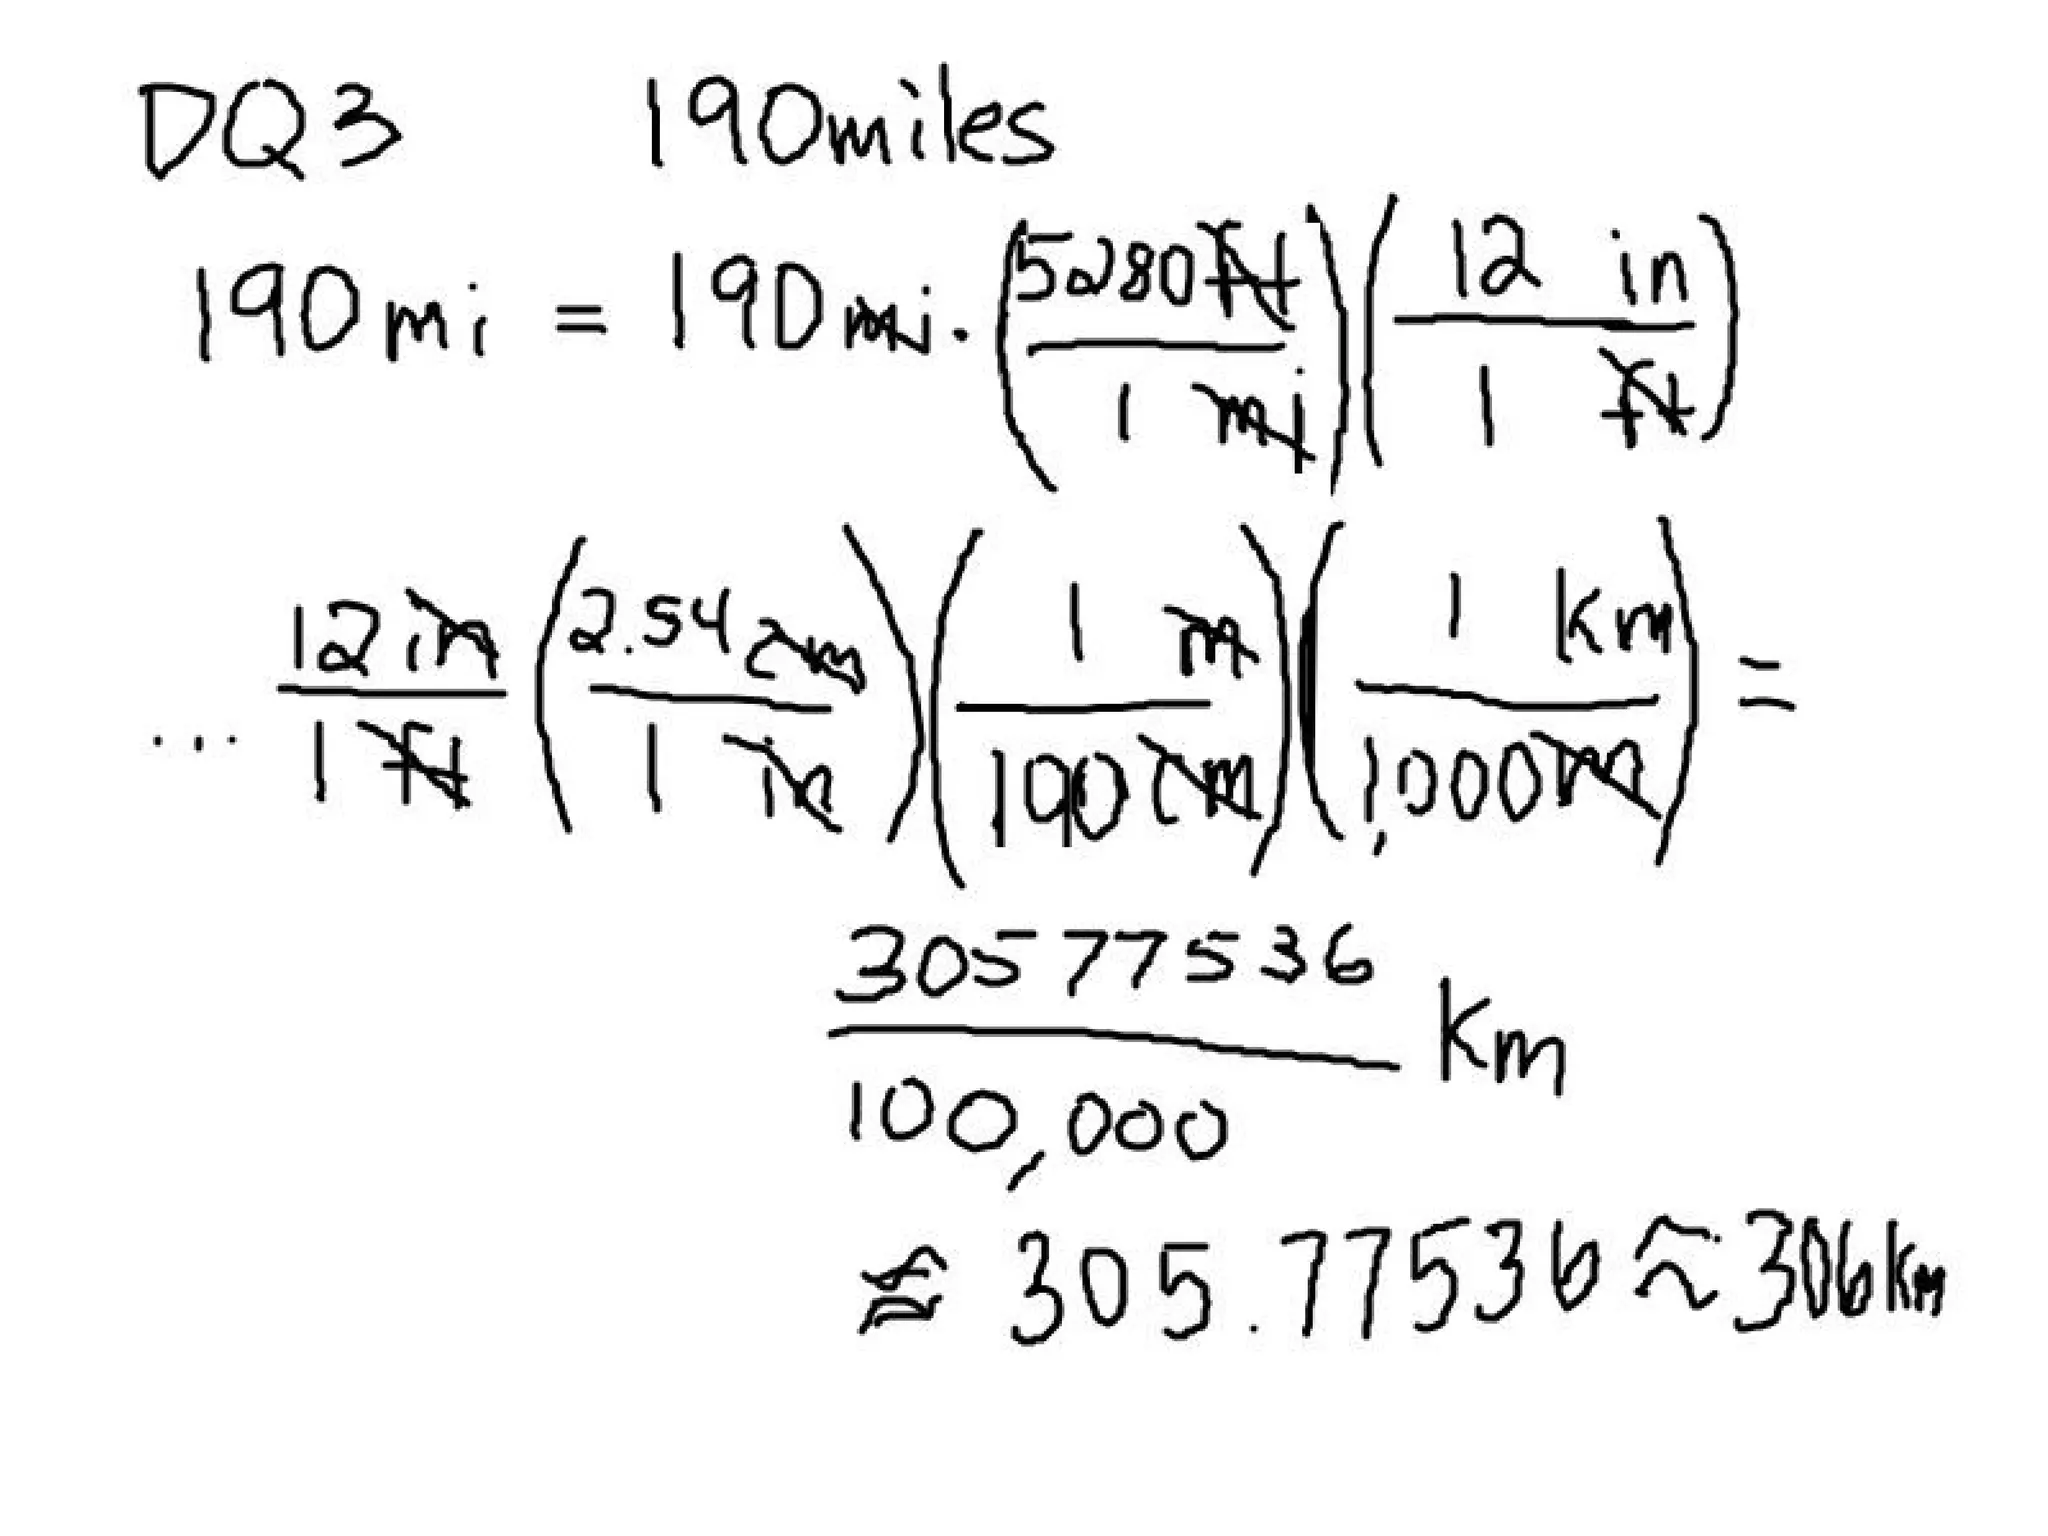 DQ3 190miles
190mi = 190mi · (5280ft / 1 mi) (12 in / 1 ft)
... 12in / 1ft (2.54cm / 1 in) (1 m / 190cm) (1 km / 1,000m) =
30577536 / 100,000 km
≈ 305.77536 ≈ 306km